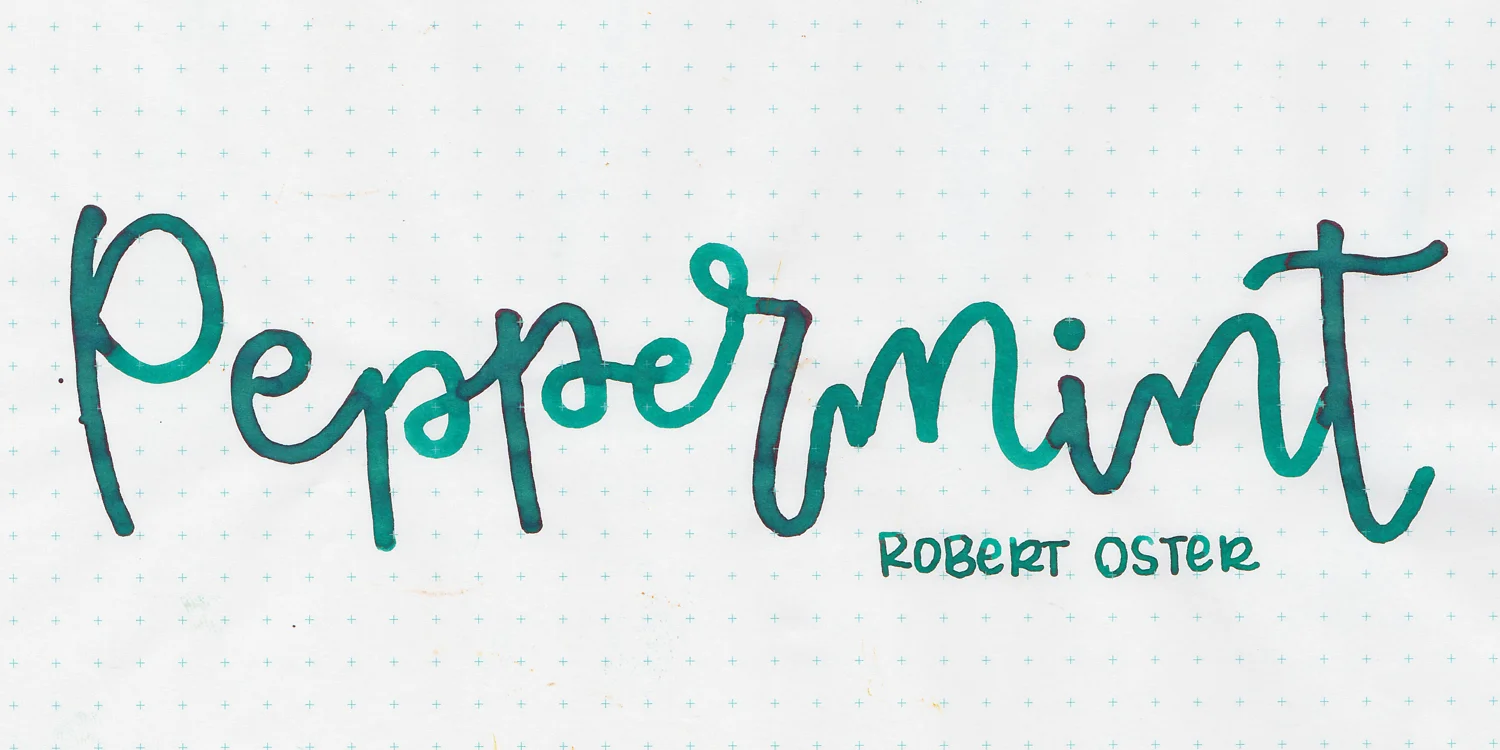 Peppermint
ROBERT OSTER